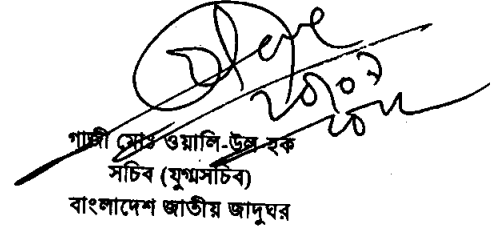 গাজী মোঃ ওয়ালি-উল হক
সচিব (যুগ্মসচিব)
বাংলাদেশ জাতীয় জাদুঘর